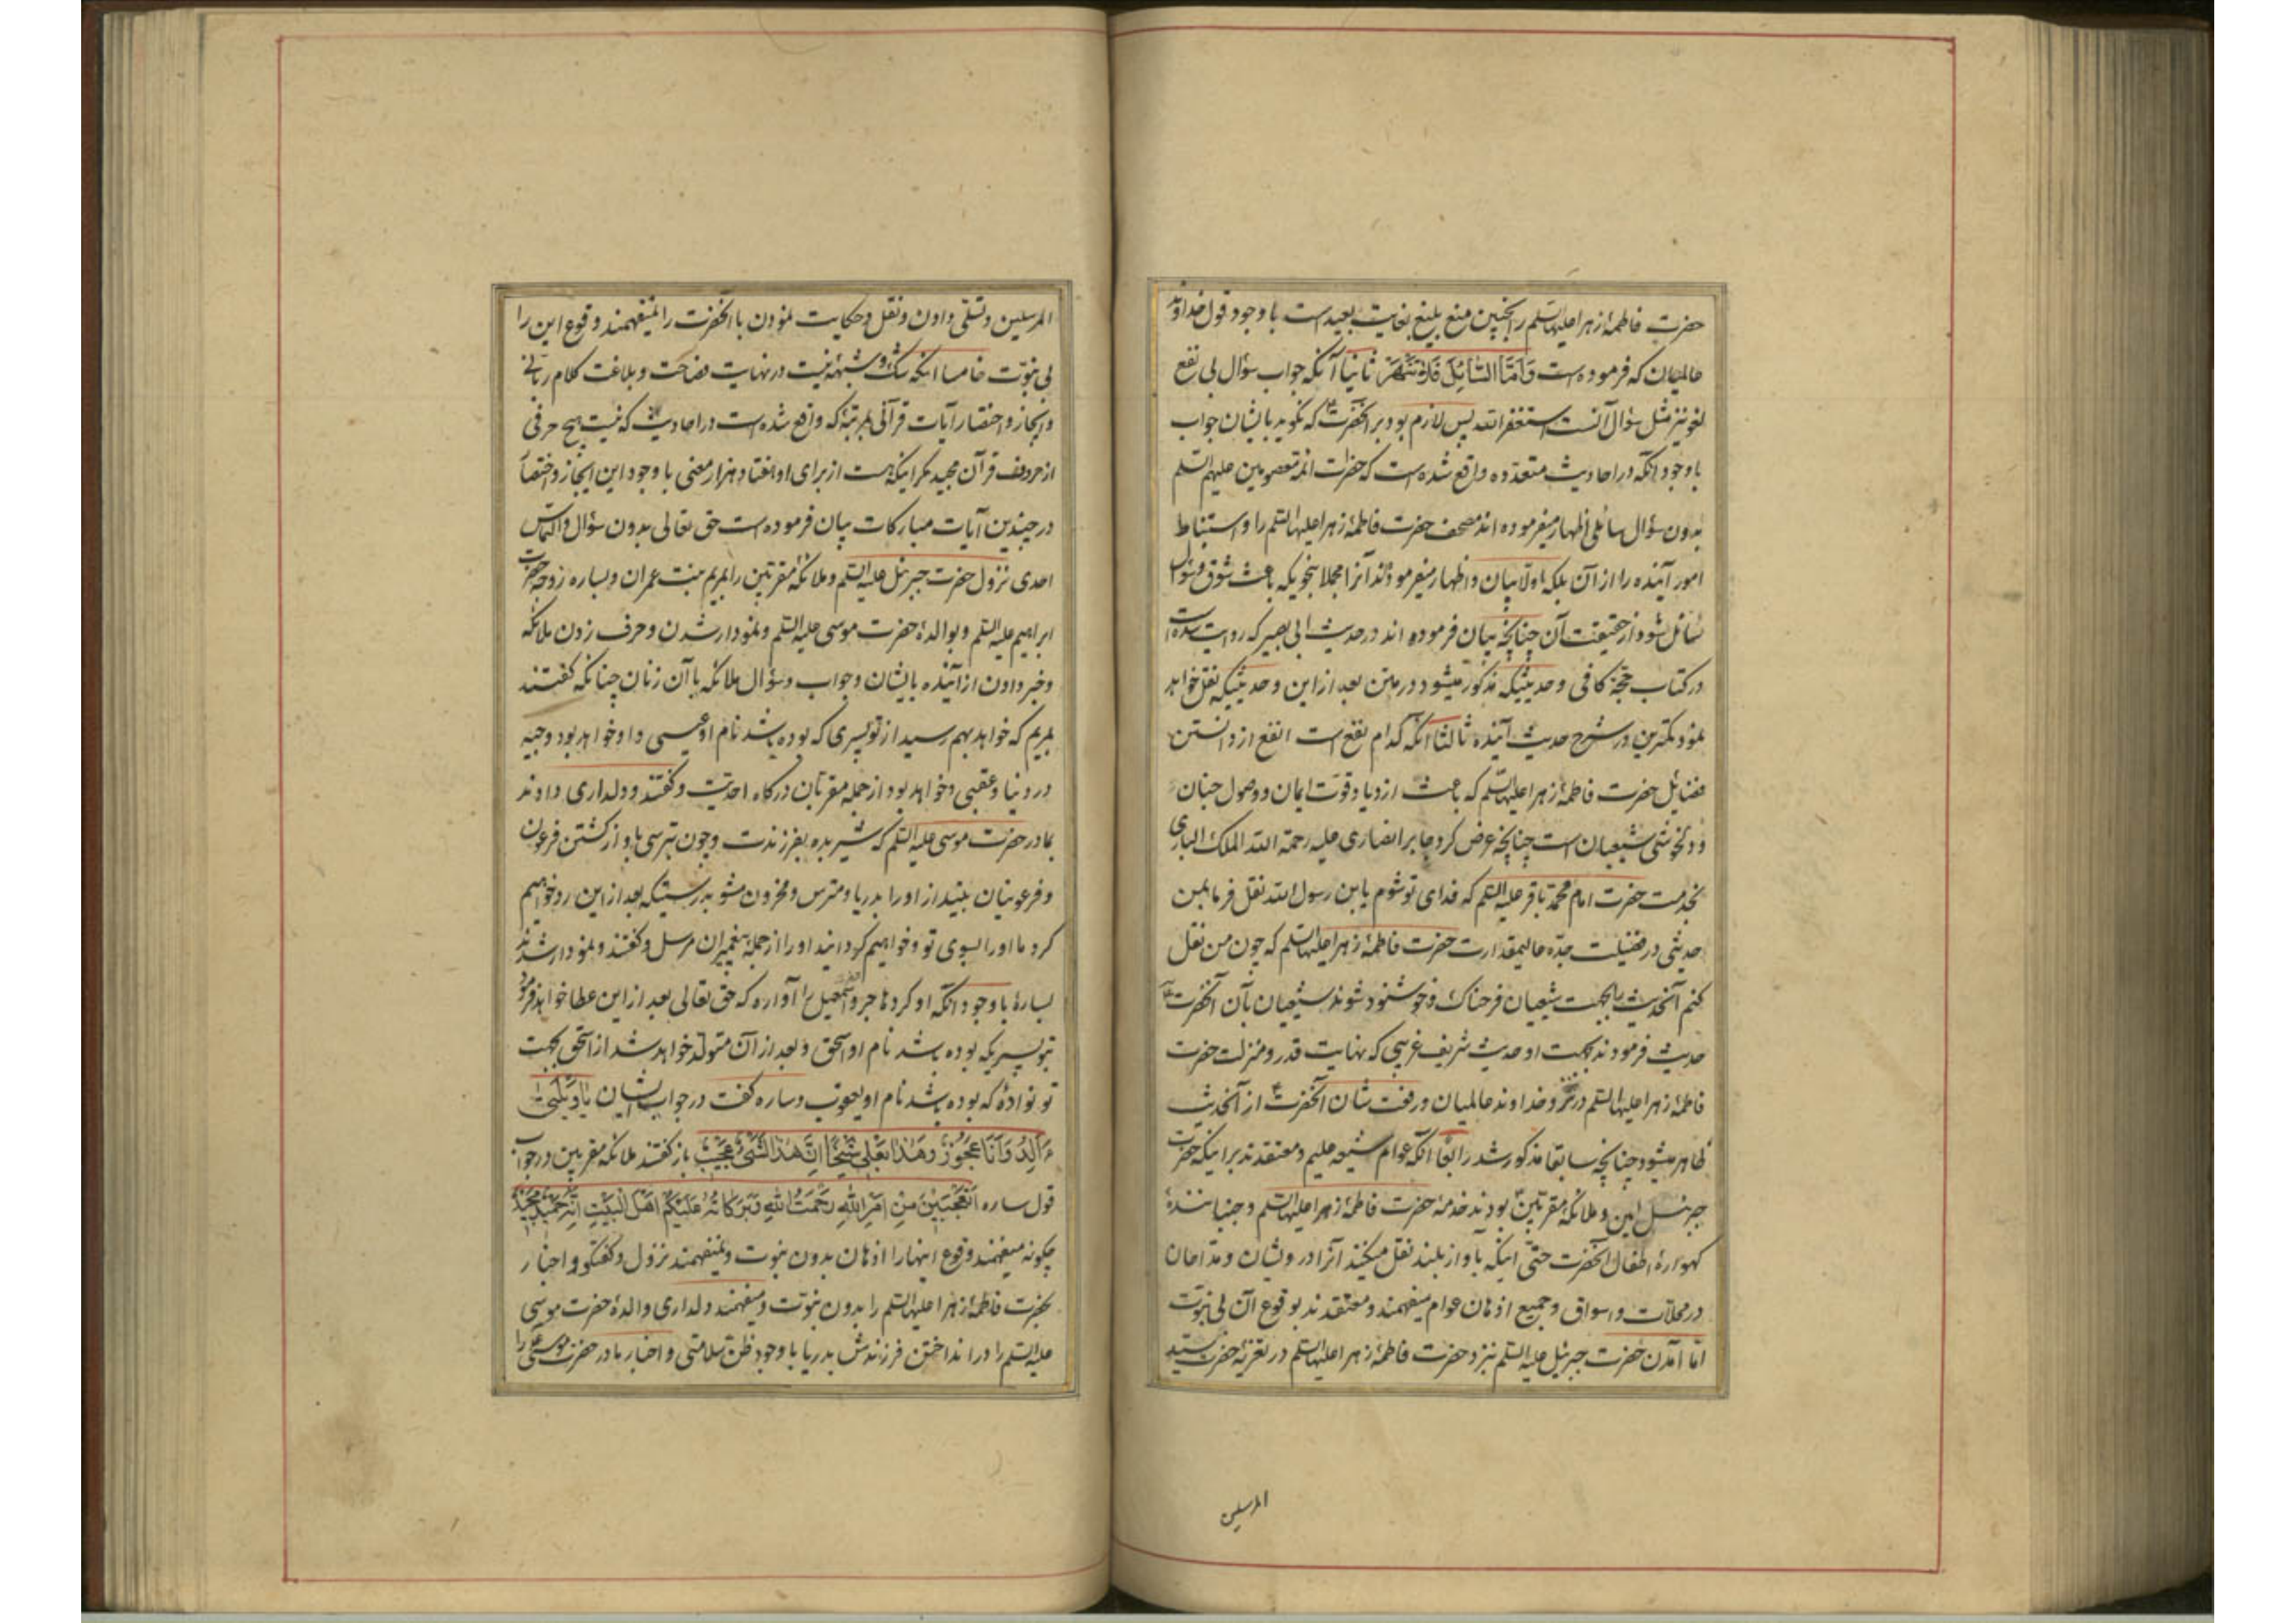 حضرت فاطمهٔ زهرا علیها السلم را بچنین منع بلیغ بغایت بعید است با وجود قول خداوند
عالمیان که فرموده است وَاَمَّا السَّائِلَ فَلَا تَنْهَرْ ثانیا آنکه جواب سؤال بی نفع
لغو نیز مثل سؤال آنست استغفر الله پس لازم بود بر آنحضرت که نگوید بایشان جواب
با وجود آنکه در احادیث متعدده واقع شده است که حضرات ائمه معصومین علیهم السلم
بدون سؤال سائلی اظهار میفرموده اند مصحف حضرت فاطمهٔ زهرا علیها السلم را و استنباط
امور آینده را از آن بلکه اولا بیان و اظهار میفرموده اند آنرا مجملا بنحویکه باعث شوق و سؤال
سائل شود از حقیقت آن چنانچه بیان فرموده اند در حدیث ابی بصیر که روایت شده است
در کتاب حجة کافی و حدیثیکه مذکور میشود در متن بعد از این و حدیثیکه نقل خواهد
نمود کمترین در شرح حدیث آینده ثالثا آنکه کدام نفع است انفع از دانستن
فضایل حضرت فاطمهٔ زهرا علیها السلم که باعث ازدیاد قوت ایمان و وصول جنان
و دلخوشی شیعیان است چنانچه عرض کرد جابر انصاری علیه رحمة الله الملک الباری
بخدمت حضرت امام محمد باقر علیه السلم که فدای تو شوم یابن رسول الله نقل فرما بمن
حدیثی در فضیلت جدّه عالیمقدارت حضرت فاطمهٔ زهرا علیها السلم که چون من نقل
کنم آنحدیث را بجهت شیعیان فرحناک و خوشنود شوند شیعیان بآن آنحضرت
حدیث فرمودند بجهت او حدیث شریف غریبی که نهایت قدر و منزلت حضرت
فاطمهٔ زهرا علیها السلم در نزد خداوند عالمیان و رفعت شان آنحضرت از آنحدیث
ظاهر میشود چنانچه سابقا مذکور شد رابعا آنکه عوام شیعه علیم و معتقدند بر اینکه حضرت
جبرئیل امین و ملائکهٔ مقربین بودند خدمهٔ حضرت فاطمهٔ زهرا علیها السلم و جنبانندهٔ
کهوارهٔ اطفال آنحضرت حتی اینکه بآواز بلند نقل میکنند آنرا درویشان و مداحان
در محلات و اسواق و جمیع اذهان عوام میفهمند و معتقدند بوقوع آن بی نبوت
اما آمدن حضرت جبرئیل علیه السلم نزد حضرت فاطمهٔ زهرا علیها السلم در تعزیهٔ حضرت سید
المرسلین
المرسلین و تسلی دادن و نقل و حکایت نمودن با آنحضرت را نمیفهمند وقوع این را
بی نبوت خامسا اینکه شک و شبهه نیست در نهایت فصاحت و بلاغت کلام ربانی
و ایجاز و اختصار آیات قرآنی بمرتبهٔ که واقع شده است در احادیث که نیست هیچ حرفی
از حروف قرآن مجید مکر اینکه هست از برای او هفتاد هزار معنی با وجود این ایجاز و اختصار
در چندین آیات مبارکات بیان فرموده است حق تعالی بدون سؤال و التماس
احدی نزول حضرت جبرئیل علیه السلم و ملائکهٔ مقربین را بمریم بنت عمران و بساره زوجه حضرت
ابراهیم علیه السلم و بوالدهٔ حضرت موسی علیه السلم و نمودار شدن و حرف زدن ملائکه
و خبر دادن از آینده بایشان و جواب و سؤال ملائکه با آن زنان چنانکه کفتند
بمریم که خواهد بهم رسید از تو پسری که بوده باشد نام او عیسی و او خواهد بود وجیه
در دنیا و عقبی و خواهد بود از جمله مقربان درکاه احدیت و کفتند و دلداری دادند
بمادر حضرت موسی علیه السلم که شیر بده بفرزندت و چون بترسی باو از کشتن فرعون
و فرعونیان بینداز او را بدریا و مترس و محزون مشو بدرستیکه بعد از این رد خواهیم
کرد ما او را بسوی تو و خواهیم کردانید او را از جملهٔ پیغمبران مرسل و کفتند و نمودار شدند
بسارهٔ با وجود آنکه او کرد هاجر و حضرت اسمعیل را آواره که حق تعالی بعد از این عطا خواهد فرمود
بتو پسریکه بوده باشد نام او اسحق و بعد از آن متولد خواهد شد از اسحق بجهت
تو نوادهٔ که بوده باشد نام او یعقوب و ساره کفت در جواب ایشان یَا وَیْلَتَیٰ
ءَاَلِدُ وَاَنَا عَجُوزٌ وَهٰذَا بَعْلِی شَیْخًا اِنَّ هٰذَا لَشَیْءٌ عَجِیبٌ باز کفتند ملائکه مقربین در جواب
قول ساره اَتَعْجَبِینَ مِنْ اَمْرِ اللهِ رَحْمَتُ اللهِ وَبَرَکَاتُهُ عَلَیْکُمْ اَهْلَ الْبَیْتِ اِنَّهُ حَمِیدٌ مَجِیدٌ
چکونه میفهمند وقوع اینها را اذهان بدون نبوت و نمیفهمند نزول و کفتکو و اخبار
بحضرت فاطمهٔ زهرا علیها السلم را بدون نبوت و میفهمند دلداری والدهٔ حضرت موسی
علیه السلم را در انداختن فرزندش بدریا با وجود ظن سلامتی و اخبار مادر حضرت موسی را